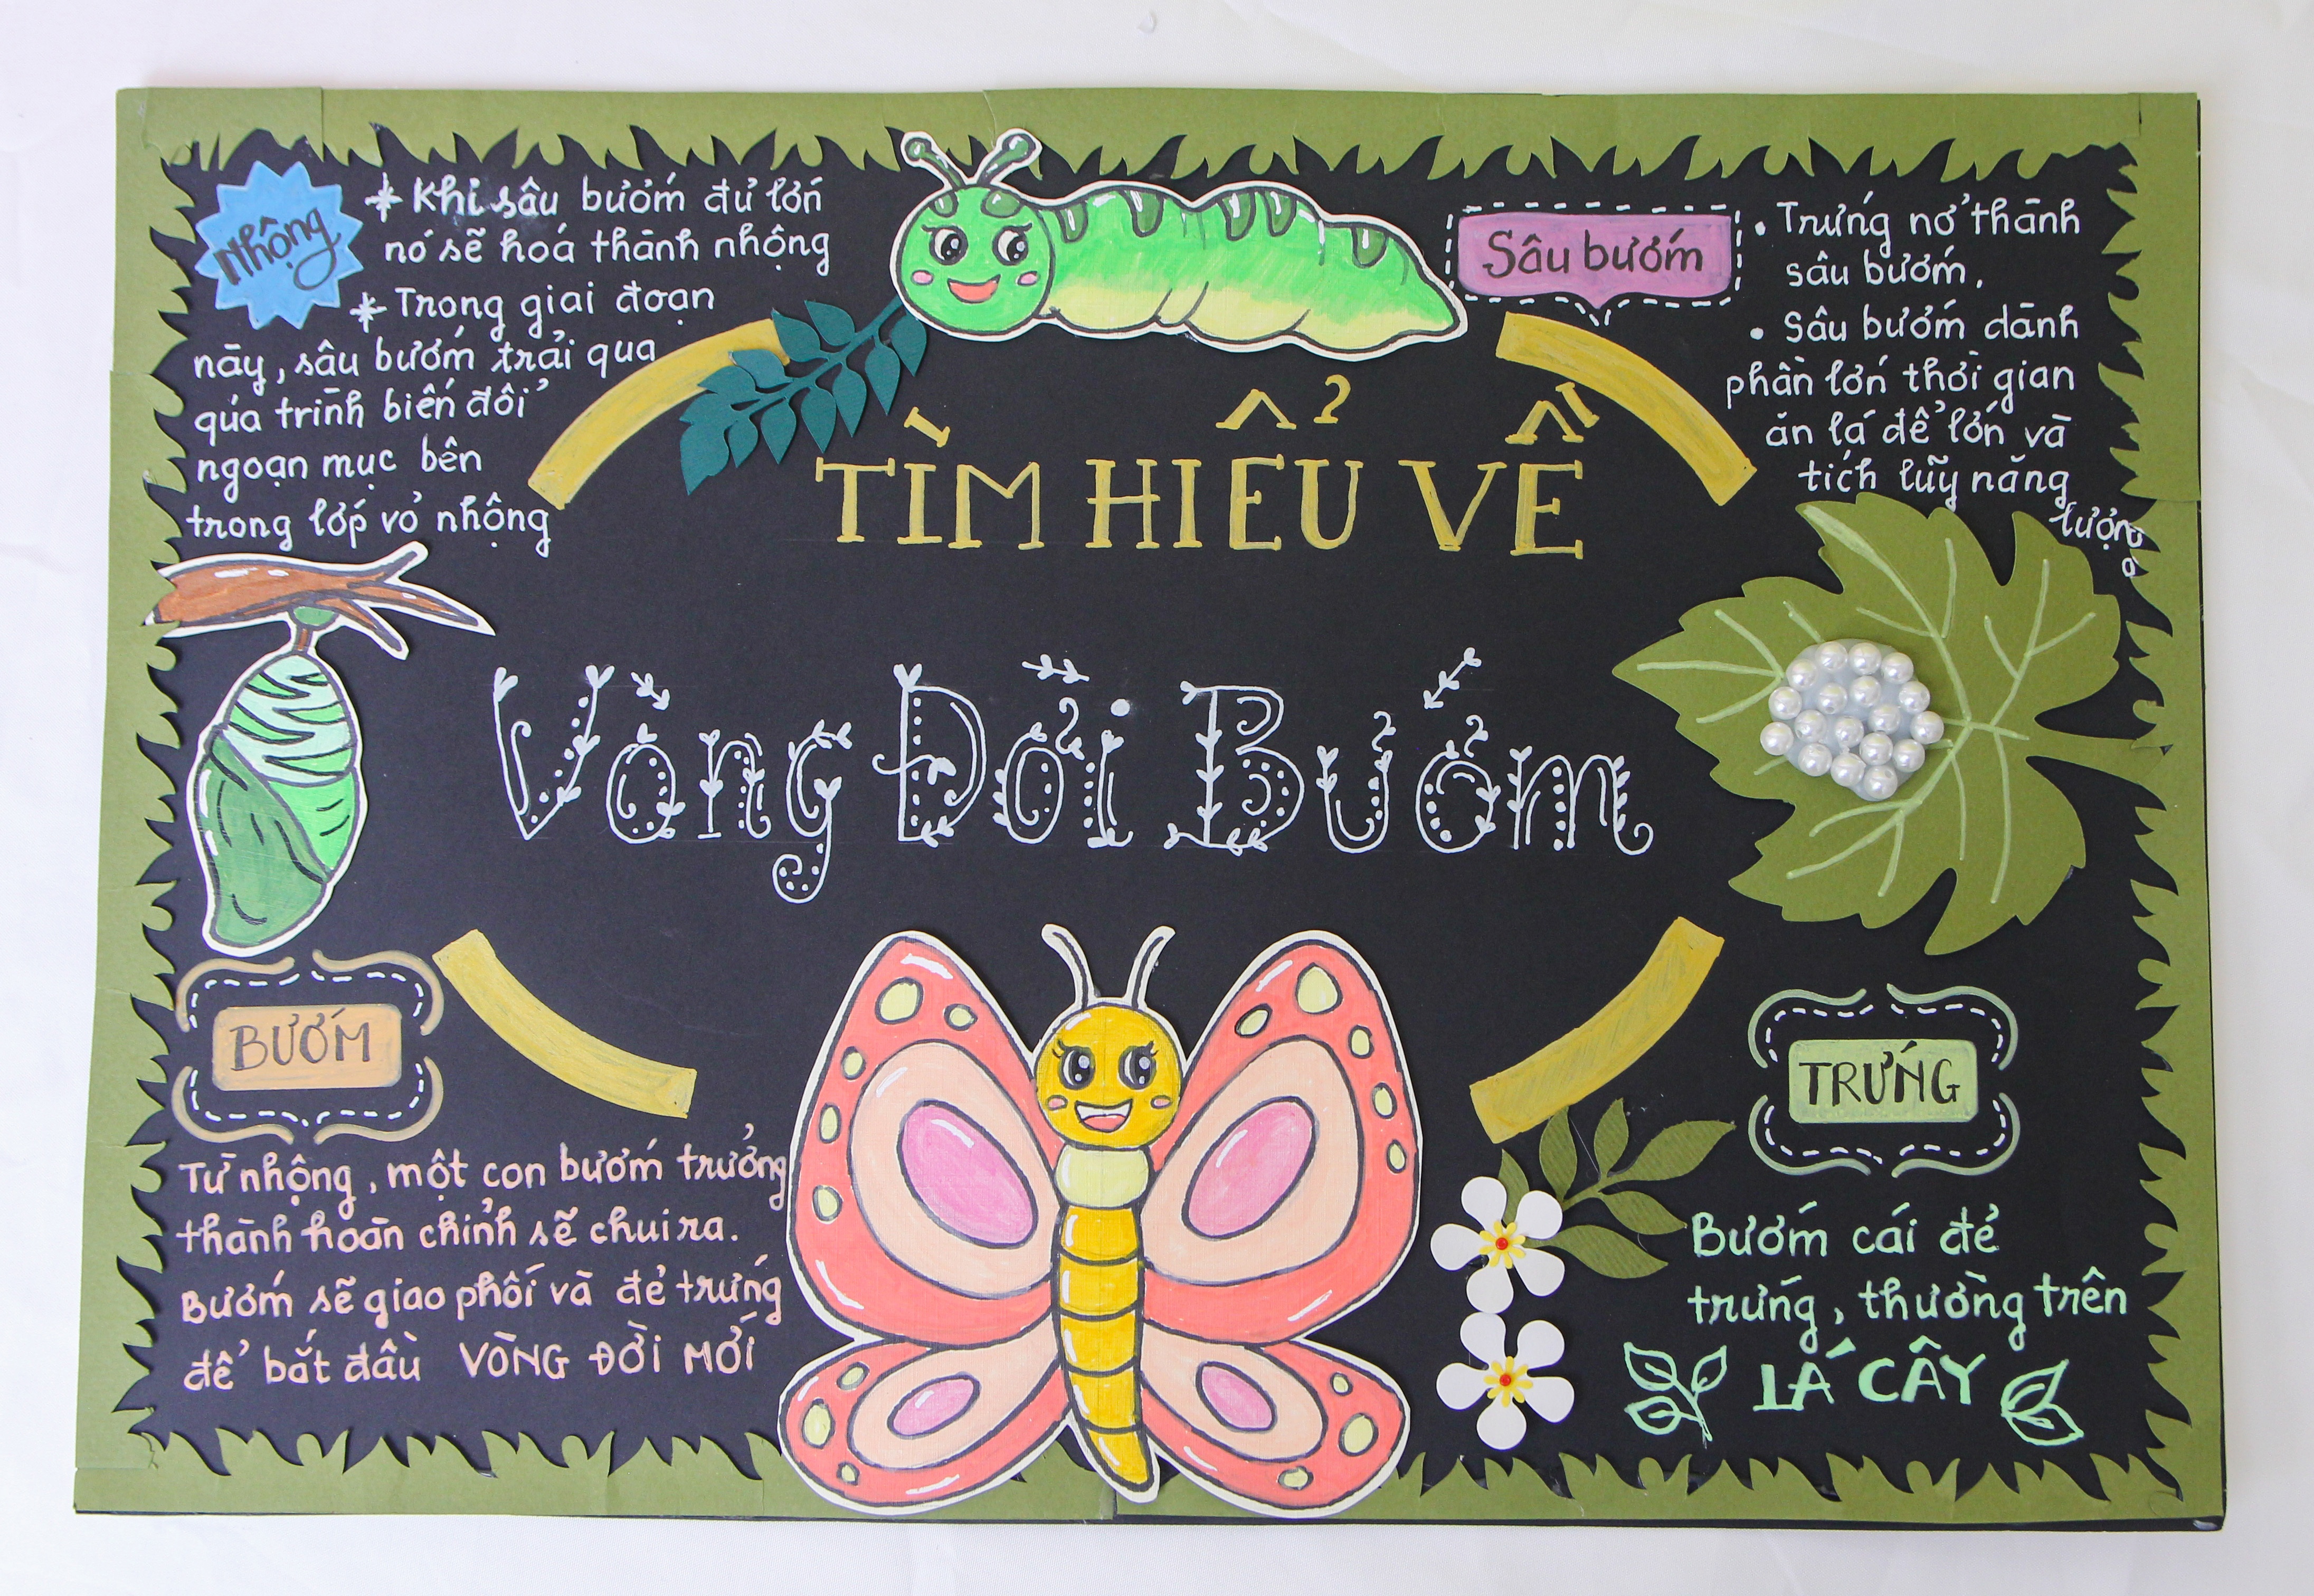 TÌM HIỂU VỀ
Vòng Đời Bướm
Nhộng
* Khi sâu bướm đủ lớn
nó sẽ hoá thành nhộng
* Trong giai đoạn
này, sâu bướm trải qua
qúa trình biến đổi
ngoạn mục bên
trong lớp vỏ nhộng
Sâu bướm
• Trứng nở thành
sâu bướm.
• Sâu bướm dành
phần lớn thời gian
ăn lá để lớn và
tích lũy năng
lượng
BƯỚM
Từ nhộng, một con bướm trưởng
thành hoàn chỉnh sẽ chui ra.
Bướm sẽ giao phối và đẻ trứng
để bắt đầu VÒNG ĐỜI MỚI
TRỨNG
Bướm cái đẻ
trứng, thường trên
LÁ CÂY